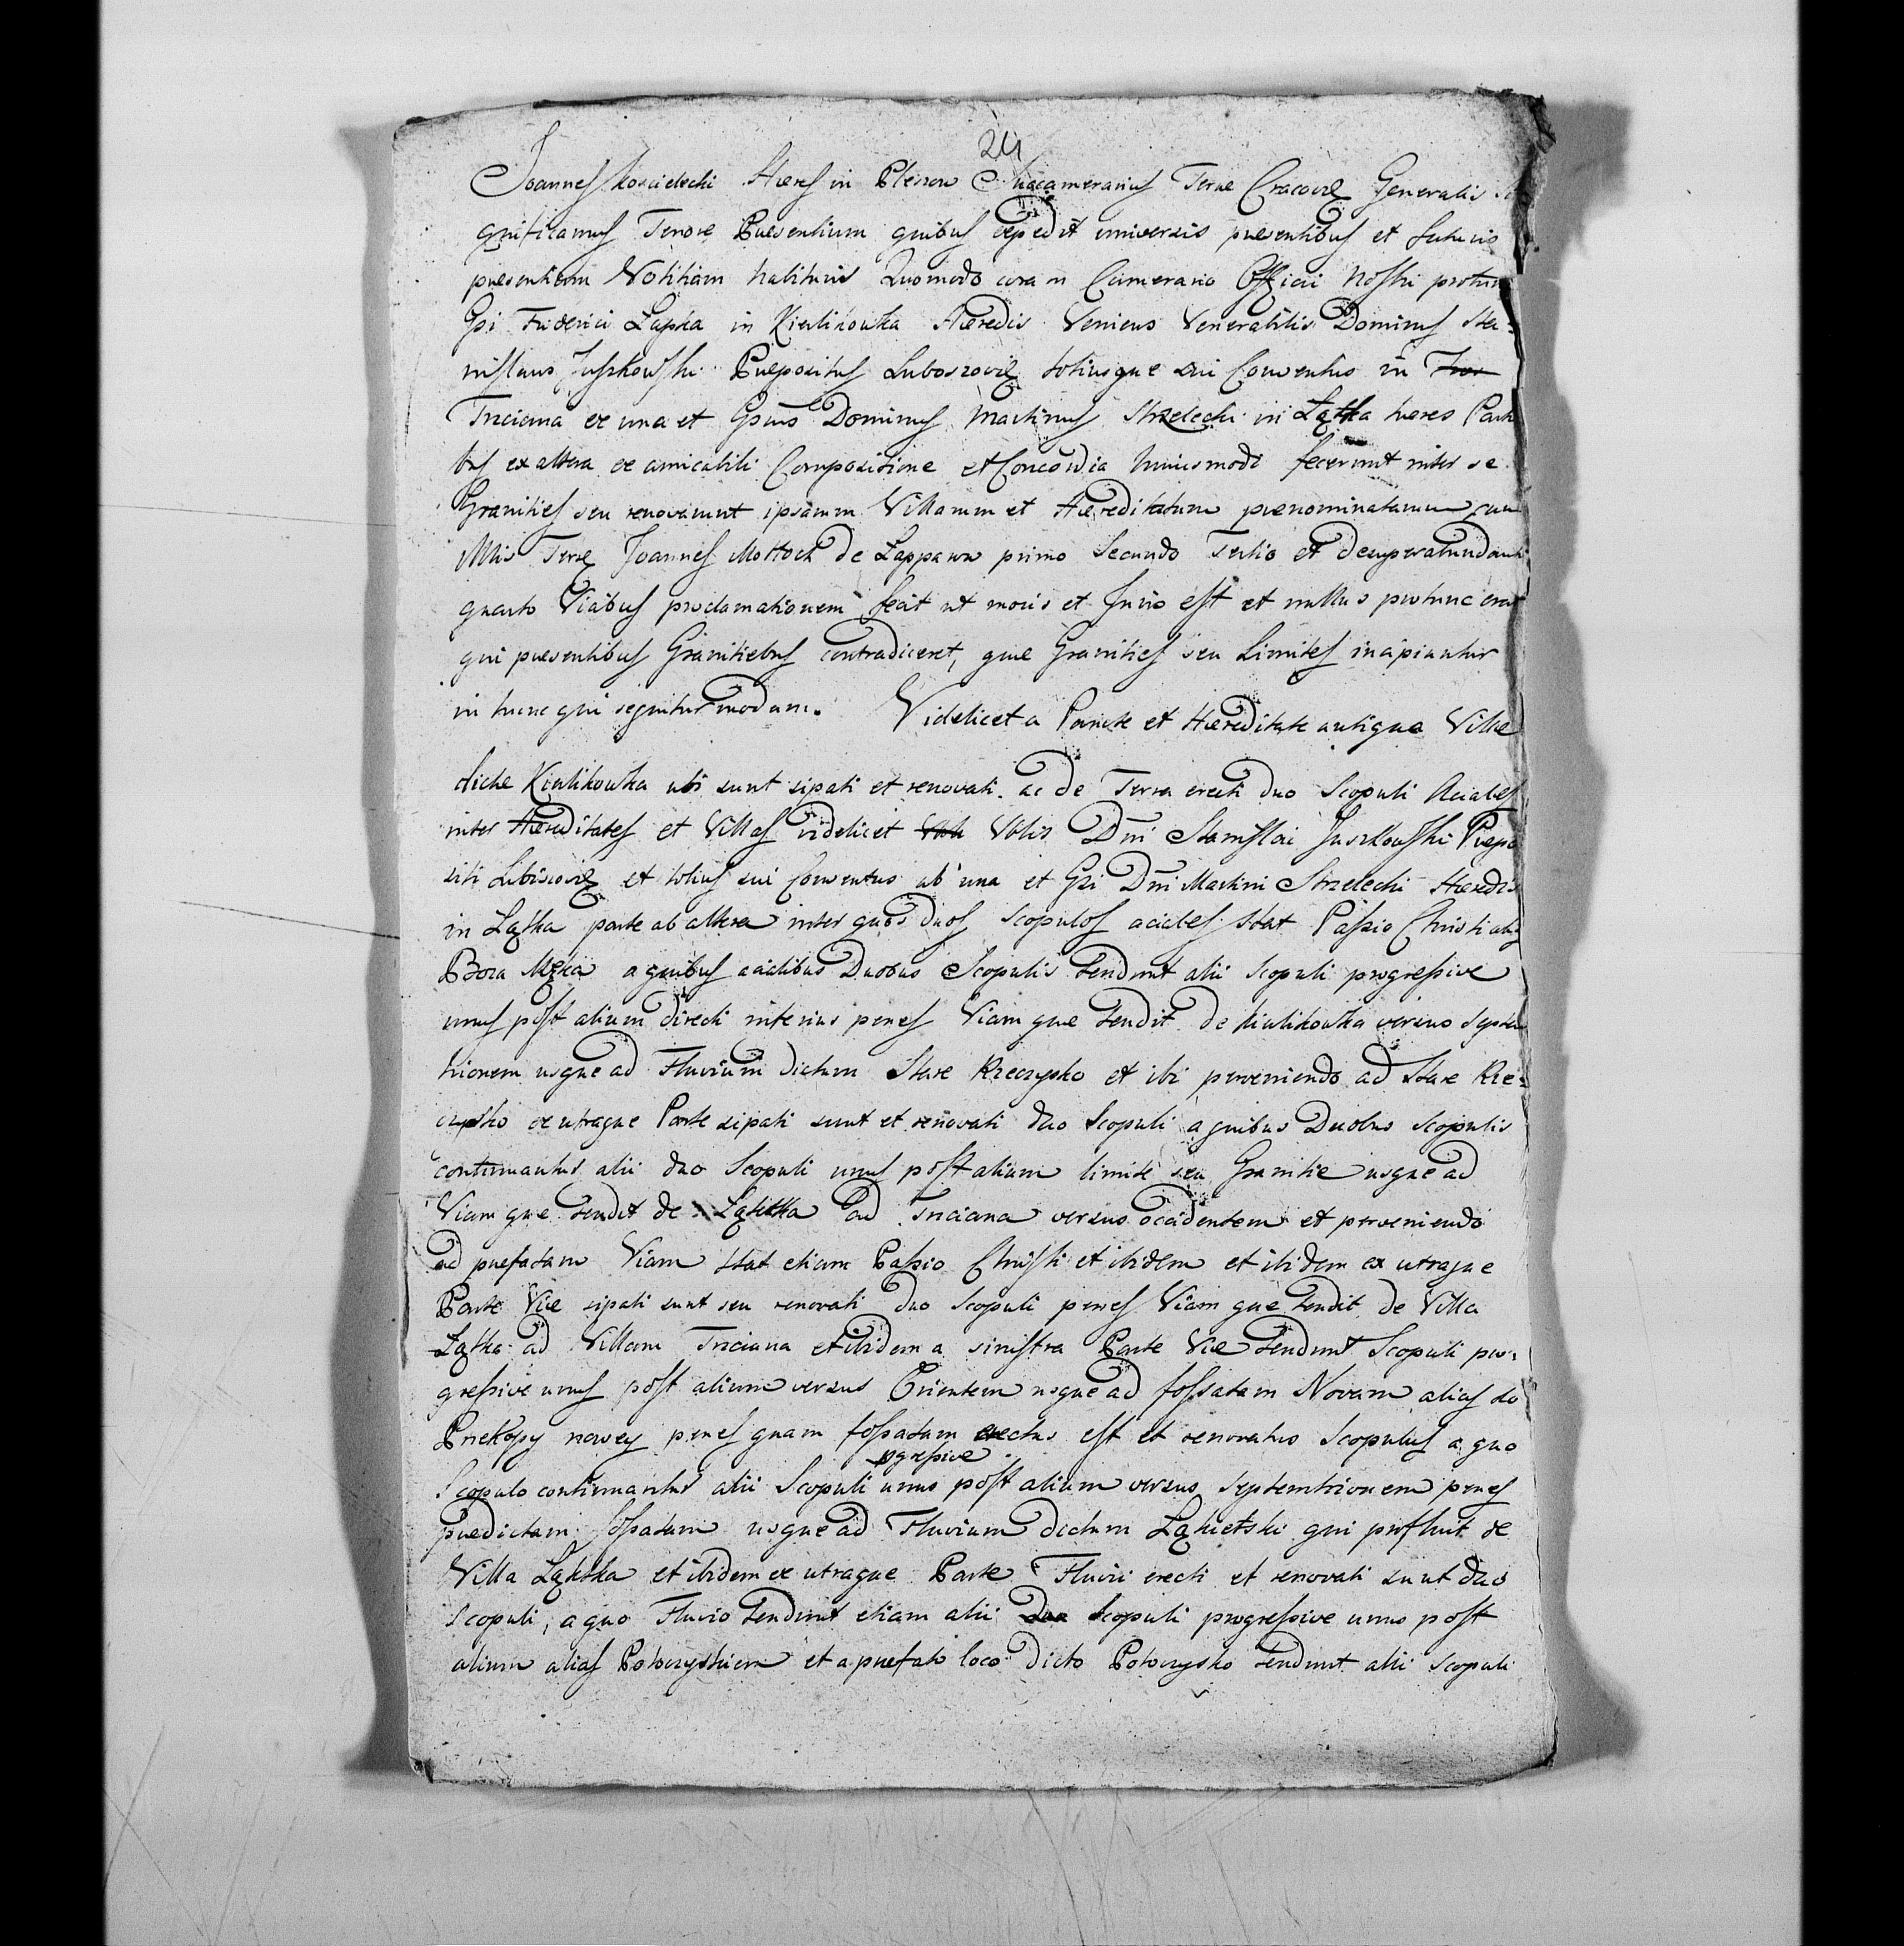 24
Joannes Koscielecki Hæres in Plessow Succamerarius Terræ Cracoviæ Generalis Si
gnificamus Tenore Præsentium quibus expedit universis præsentibus et futuris
præsentium Notitiam habituris Quomodo coram Camerario Officii Nostri protunc
Gsi Friderici Lapka in Kiulikowka Hæredis Veniens Venerabilis Dominus Sta-
nislaus Juszkowski Præpositus Luboszoviæ totiusque sui Conventus in
Trciana ex una et Gsus Dominus Martinus Strzelecki in Łątka hæres Parti
bus ex altera ex amicabili Compositione et Concordia huiusmodi fecerunt inter se
Granities seu renovarunt ipsarum Villarum et Hæreditatum prænominatarum cum
Mlis Terræ Joannes Mottock de Lappanow primo Secundo Tertio et de superabundanti
quarto Viabus proclamationem fecit ut moris et Juris est et nullus protunc erat
qui præsentibus Granitiebus contradiceret, quæ Granities seu Limites incipiuntur
in hunc qui sequitur modum. Videlicet a Parte et Hæreditate antiqua Villæ
dictæ Kiulikowka ubi sunt sipati et renovati ac de Terra erecti duo Scopuli Aciales
inter Hæreditates et Villas videlicet Vblis Dni Stanislai Juszkowski Præpo
siti Libiszoviæ et totius sui Conventus ab una et Gsi Dni Martini Strzelecki Hæredis
in Łątka parte ab altera inter quos duos scopulos aciales stat Passio Christi alias
Boza Męka a quibus acialibus Duobus Scopulis tendunt alii Scopuli progressive
unus post alium directi interius penes Viam quæ tendit de Kiulikowka versus Septen
trionem usque ad Fluvium dictum Stare Rzeczysko et ibi perveniendo ad Stare Rze-
czysko ex utraque Parte sipati sunt et renovati duo Scopuli a quibus Duobus Scopulis
continuantur alii duo Scopuli unus post alium limite seu Granitie usque ad
Viam quæ tendit de Łątka ad Trciana versus occidentem et perveniendo
ad præfatam Viam stat etiam Passio Christi et ibidem et ibidem ex utraque
Parte Viæ sipati sunt seu renovati duo Scopuli penes Viam quæ tendit de Villa
Łątka ad Villam Trciana et ibidem a sinistra Parte Viæ tendunt Scopuli pro-
gressive unus post alium versus Orientem usque ad fossatam Novam alias do
Przekopy nowey penes quam fossatam erectus est et renovatus Scopulus a quo
Scopulo continuantur alii Scopuli pgressive unus post alium versus septemtrionem penes
prædictam fossatam usque ad Fluvium dictum Łąkietski qui profluit de
Villa Łątka et ibidem ex utraque Parte Fluvii erecti et renovati sunt duo
Scopuli, a quo Fluvio tendunt etiam alii duo Scopuli progressive unus post
alium alias Potoczyskiem et a præfato loco dicto Potoczysko tendunt alii Scopuli